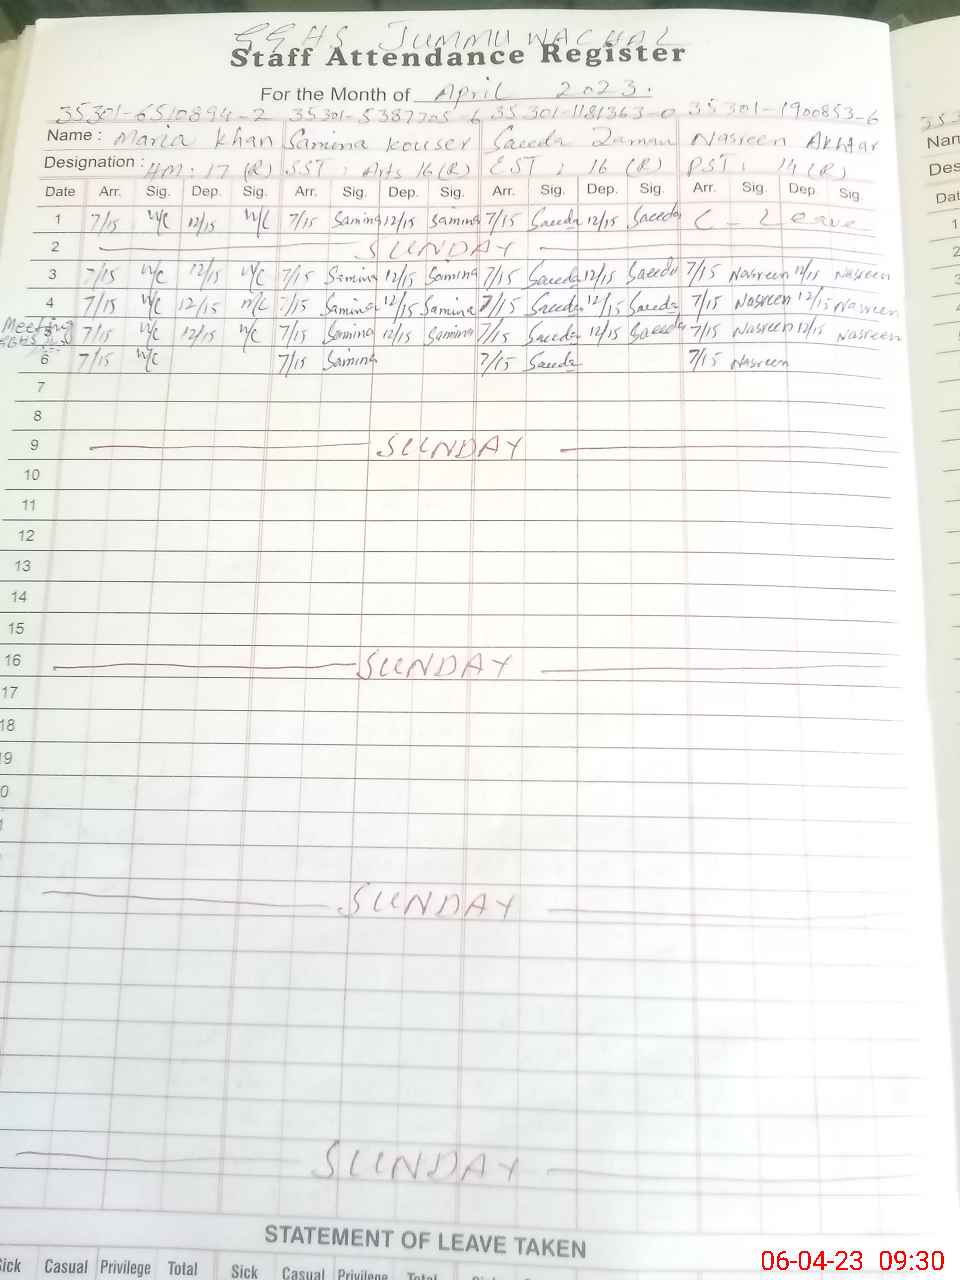 GGHS JUMMU WACHAL
Staff Attendance Register
For the Month of April 2023.
35301-6510894-2 35301-5387705-6 35301-1181363-0 35301-1900853-6
Name : Maria Khan Samina Kouser Saeeda Zaman Nasreen Akhtar
Designation : HM: 17 (R) SST: Arts 16 (R) EST: 16 (R) PST: 14 (R)
Date Arr. Sig. Dep. Sig. Arr. Sig. Dep. Sig. Arr. Sig. Dep. Sig. Arr. Sig. Dep. Sig.
1 7/15 12/15 7/15 Samina 12/15 Samina 7/15 Saeeda 12/15 Saeeda C - Leave
2 SUNDAY
3 7/15 12/15 7/15 Samina 12/15 Samina 7/15 Saeeda 12/15 Saeeda 7/15 Nasreen 12/15 Nasreen
4 7/15 12/15 7/15 Samina 12/15 Samina 7/15 Saeeda 12/15 Saeeda 7/15 Nasreen 12/15 Nasreen
Meeting 5 7/15 12/15 7/15 Samina 12/15 Samina 7/15 Saeeda 12/15 Saeeda 7/15 Nasreen 12/15 Nasreen
6 7/15 7/15 Samina 7/15 Saeeda 7/15 Nasreen
7
8
9 SUNDAY
10
11
12
13
14
15
16 SUNDAY
17
18
19
SUNDAY
SUNDAY
STATEMENT OF LEAVE TAKEN
Sick Casual Privilege Total Sick Casual Privilege Total
06-04-23 09:30